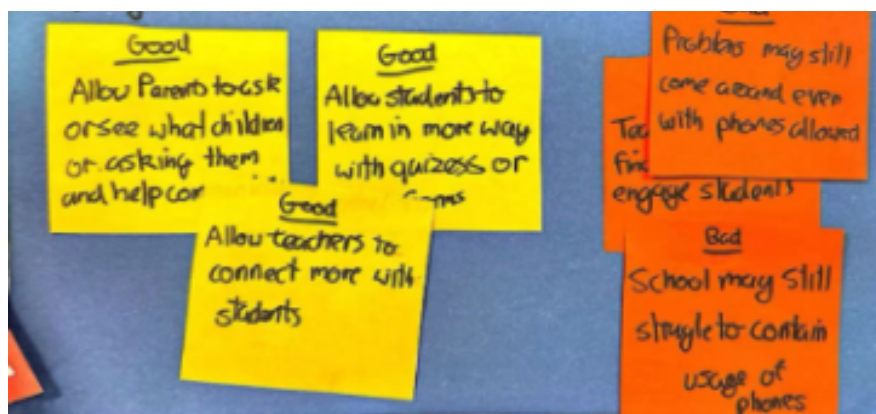 Good
Allow Parents to ask
or see what children
or asking them
and help com
Good
Allow students to
learn in more way
with quizess or
Good
Allow teachers to
connect more with
students
Problems may still
come around even
with phones allowed
engage students
Bad
School may still
strugle to contain
usage of
phones